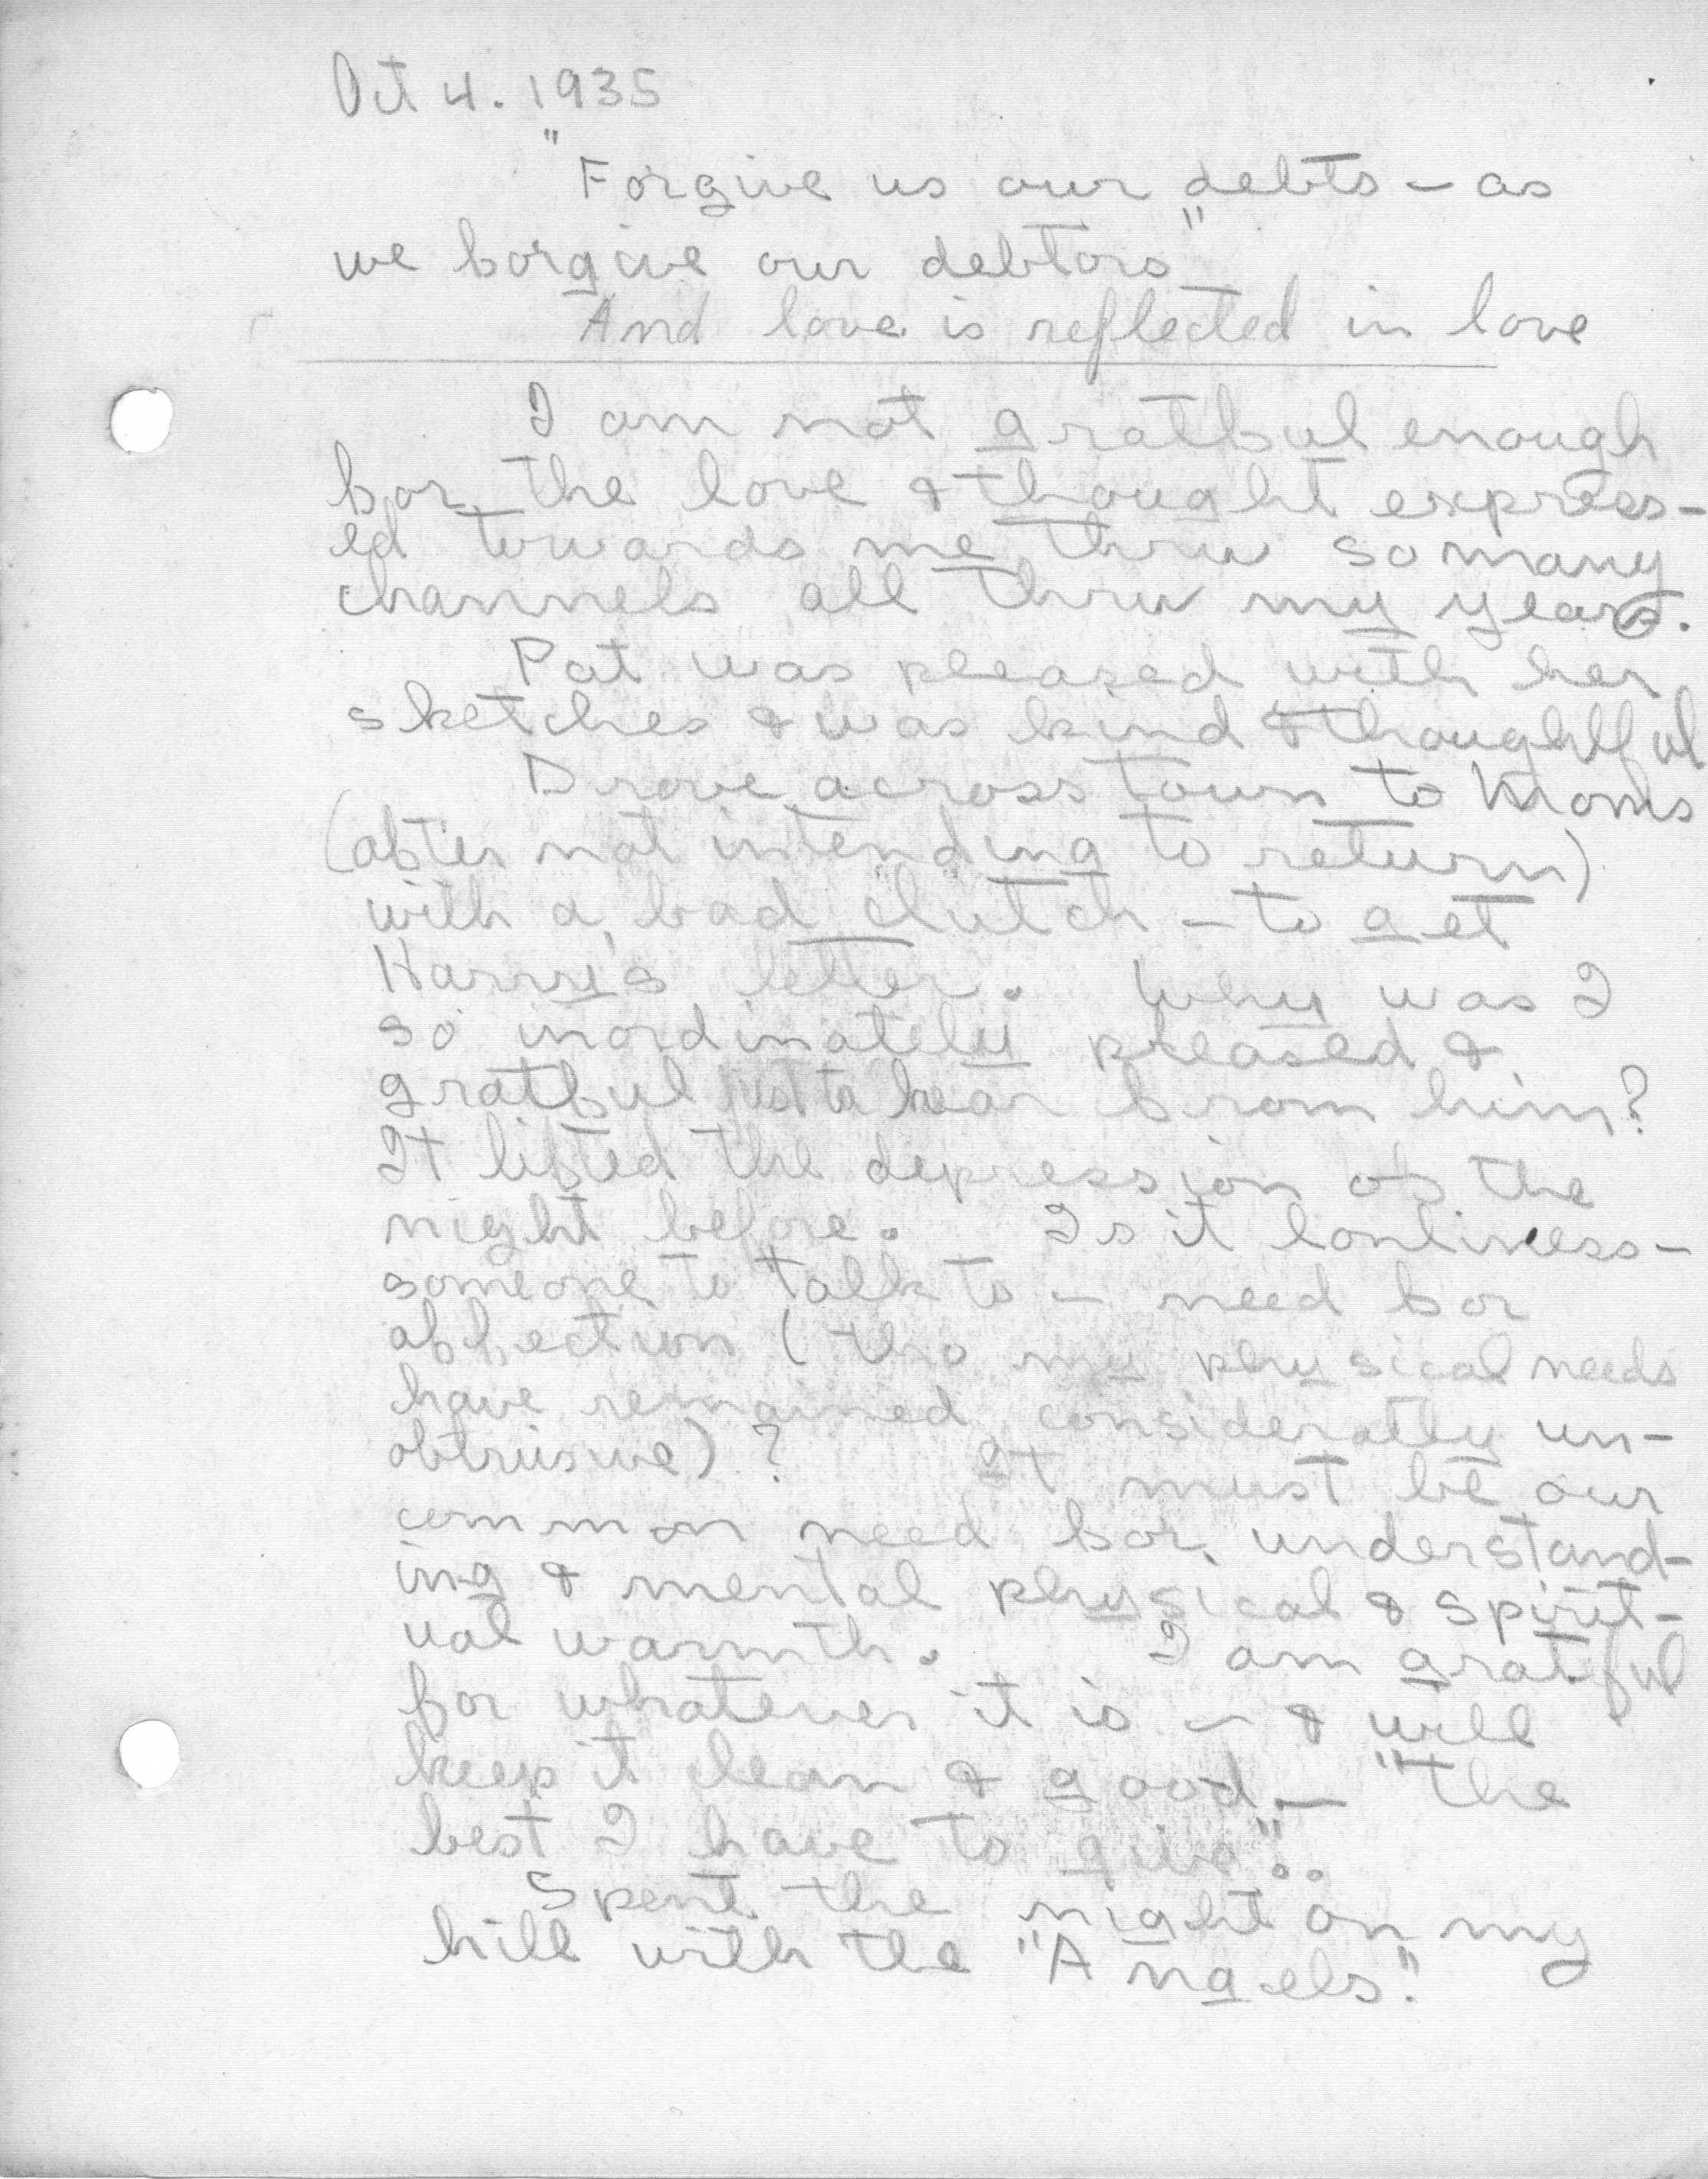 Oct 4. 1935
"Forgive us our debts – as
we forgive our debtors"
And love is reflected in love
I am not gratful enough
for the love & thought express-
ed towards me thru so many
channels all thru my years.
Pat was pleased with her
sketches & was kind & thoughtful
Drove across town to Moms
(after not intending to return)
with a bad clutch – to get
Harry's letter. Why was I
so inordinately pleased &
gratful just to hear from him?
It lifted the depression of the
night before. Is it lonliness –
someone to talk to – need for
affection (tho my physical needs
have remained considerately un-
obtrusive)? It must be our
common need for understand-
ing & mental physical & spirit-
ual warmth. I am gratful
for whatever it is – & will
keep it clean & good – "the
best I have to give"..
Spent the night on my
hill with the "Angels".